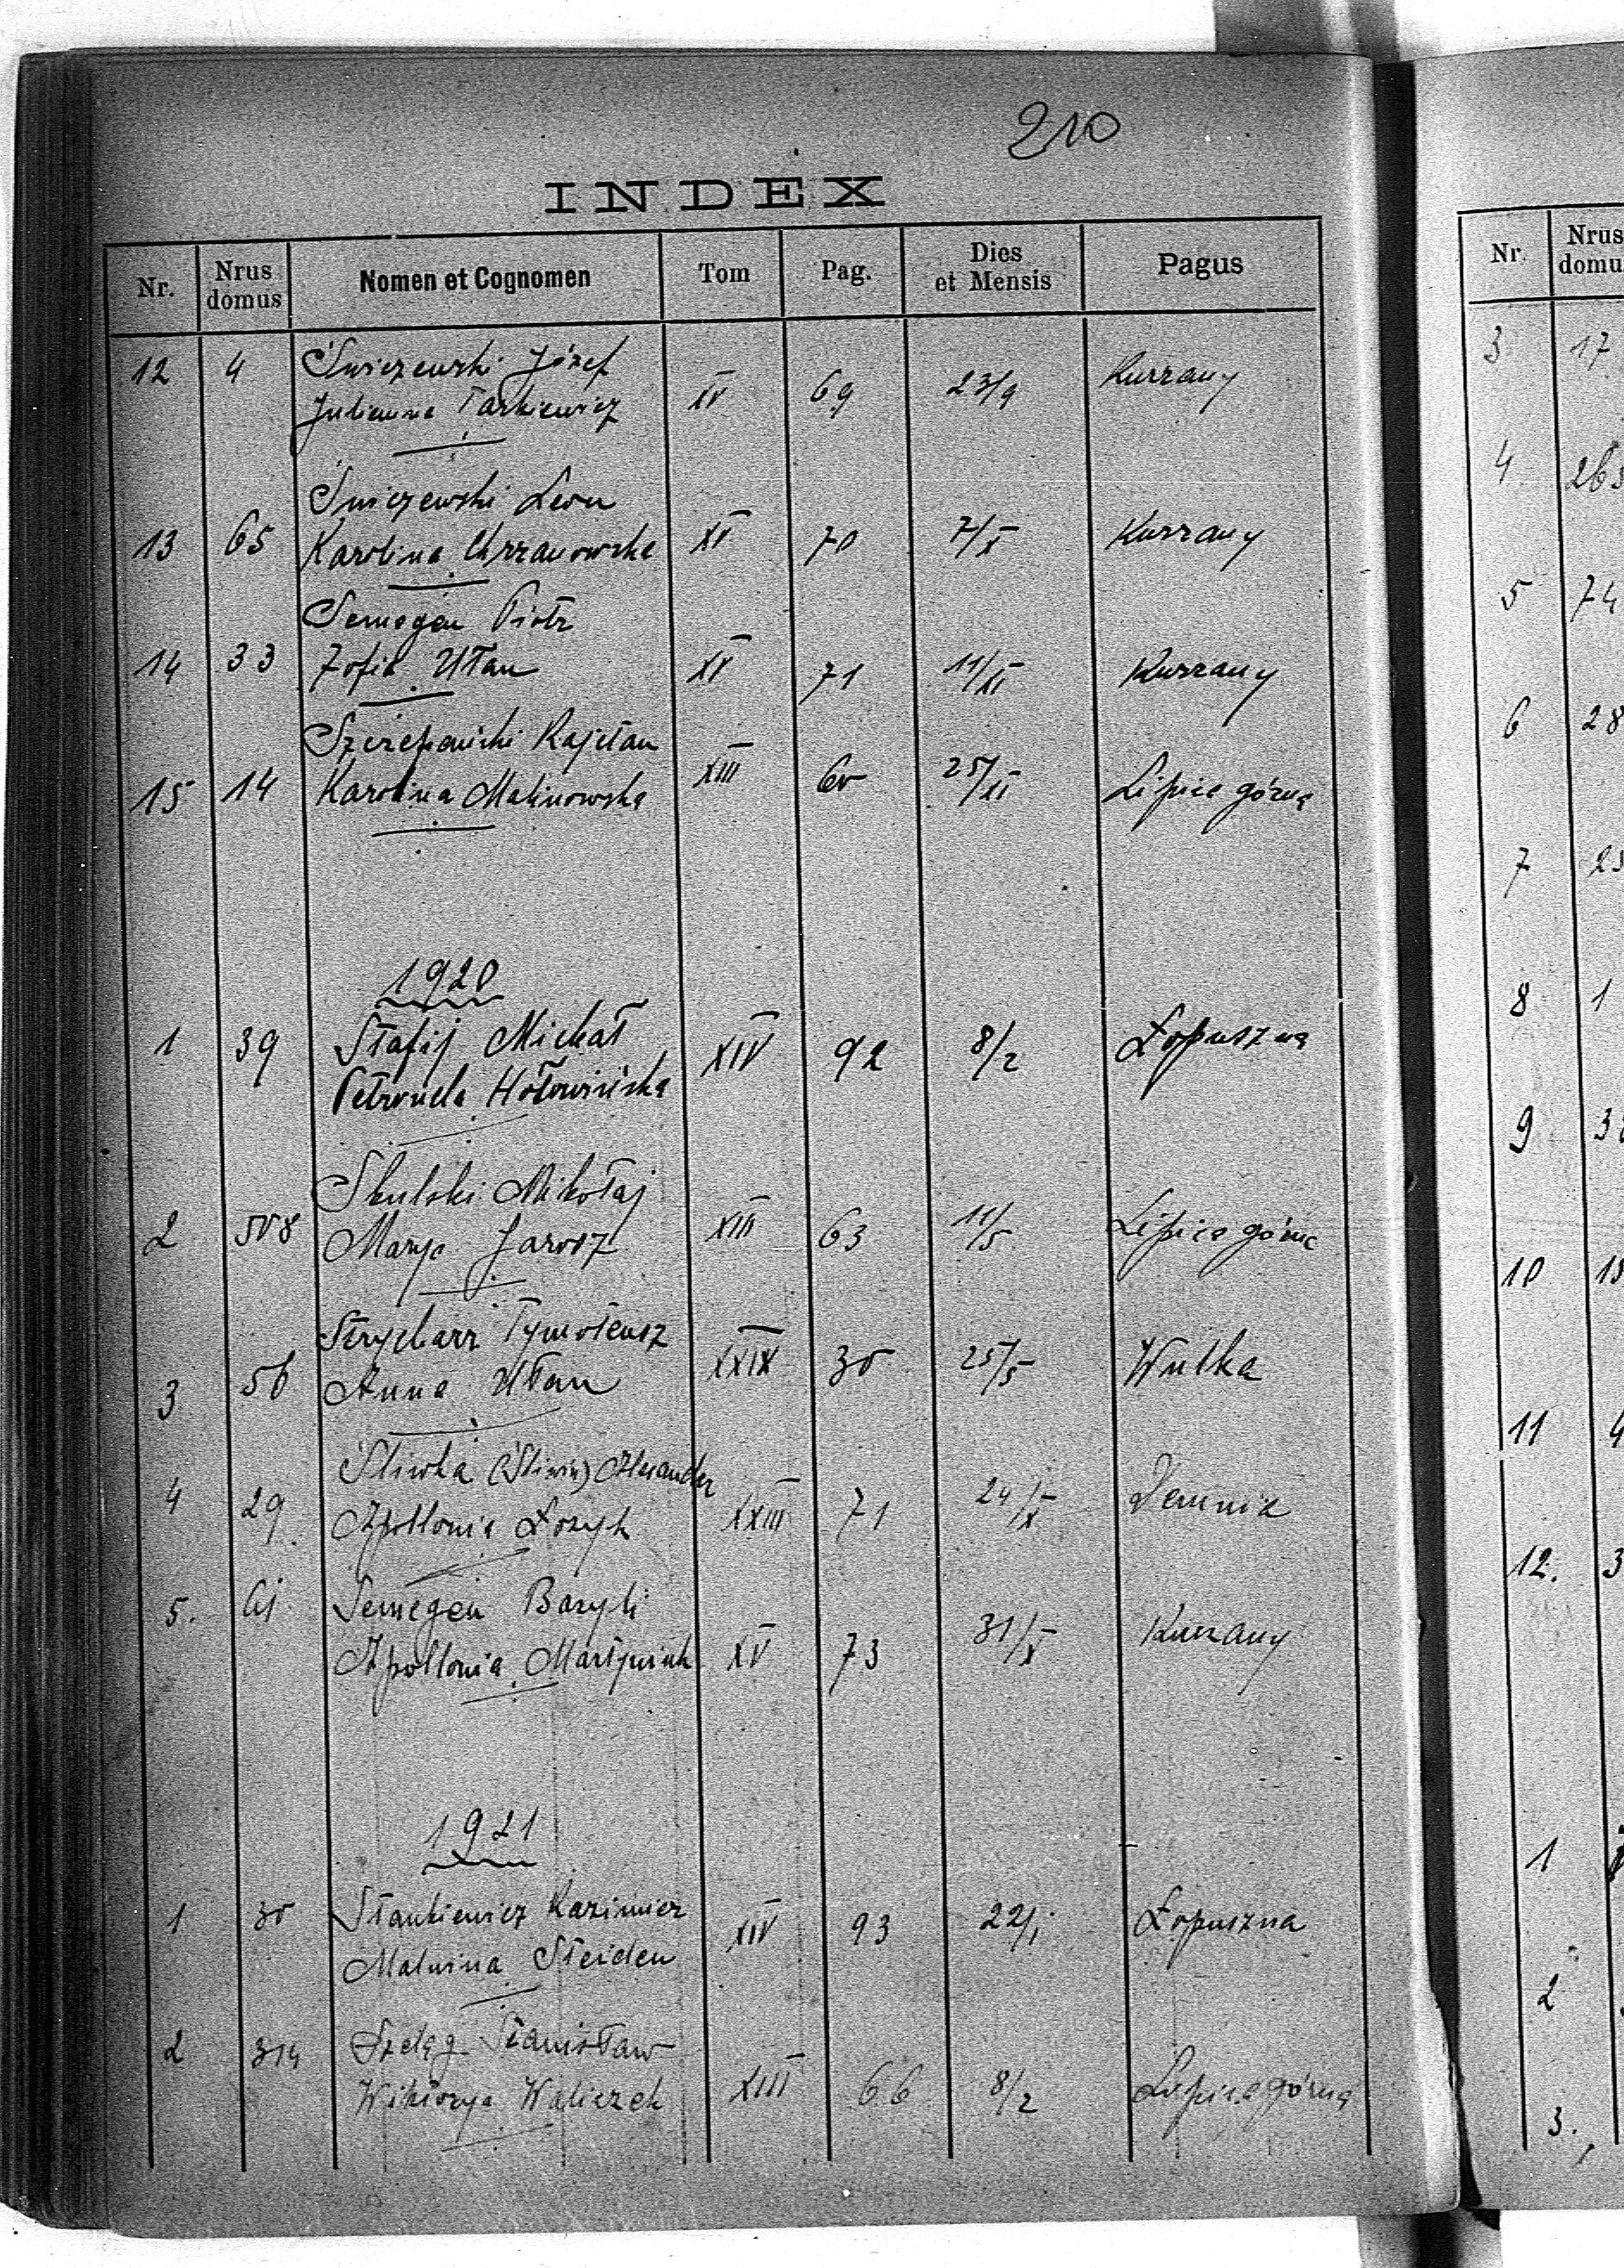 210
INDEX
Nr. Nrus domus Nomen et Cognomen Tom Pag. Dies et Mensis Pagus
12 4 Śwież​ewski Józef
Julianna Tarkiewicz XV 69 23/9 Kurzany
Świeżewski Leon
13 65 Karolina Chrzanowska XV 70 7/X Kurzany
Semegen Piotr
14 33 Zofia Ułan XV 71 11/XI Kurzany
Szczepański Kajetan
15 14 Karolina Malinowska XIII 60 25/XI Lipica górna
1920
1 39 Stafij Michał XIV 92 8/2 Łopuszna
Petronela Hołowińska
Skulski Mikołaj
2 508 Marya Jarosz XIII 63 11/5 Lipica górna
Strycharz Tymoteusz
3 56 Anna Ułan XXIX 30 25/5 Wulka
Śliwka (Śliwin) Alexander
4 29 Apollonia Łozyk XXIII 71 24/X Demnia
5. Semegen Bazyli
Apollonia Martyniuk XV 73 31/X Kurzany
1921
1 30 Stankiewicz Kazimierz XIV 93 22/I Łopuszna
Malwina Steiden
2 314 Szeląg Stanisław
Wiktorya Waliczek XIII 66 8/2 Lipica górna
Nr. Nrus domu
3 17
4
5 74
6 28
7
8 1
9
10
11
12.
1
2
3.